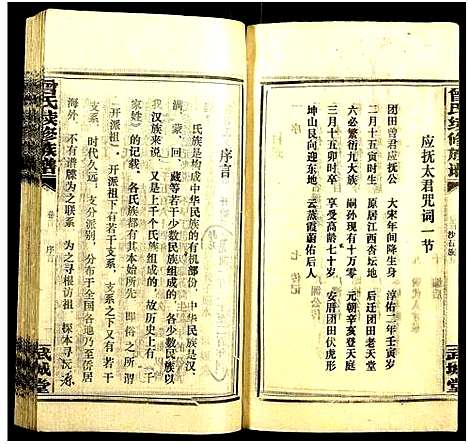 曾氏续修族谱
沙石族
武城堂
应抚太君咒词一节
团田曾君应抚公　大宋年间降生身　淳佑二年壬寅岁
二月十五寅时生　原居江西杏坛地　后迁团田老天堂
六必繁衍九大族　嗣孙现有十万零　元朝辛亥登天庭
三月十五卯时卒　享受高龄七十岁　安厝团田伏虎形
坤山艮向迎东地　云蒸霞蔚佑后人
序言
氏族是构成中华民族的有机部份，中华民族是汉、
满、蒙、回、藏等若干少数民族组成的，各少数民族以
及汉族来说，又是上千个氏族组成的，故历史上有《百
家姓》的记载，各氏族都有其本始所先，即俗之所谓
《开派祖》，开派祖下有若干支系，支系之下又有若干
支系，时代久远，支分派别，分布于全国各地乃至侨居
海外，不有谱牒为之联系，为子寻根访祖，探本寻源系
曾氏续修族谱
卷首
序言
武城堂